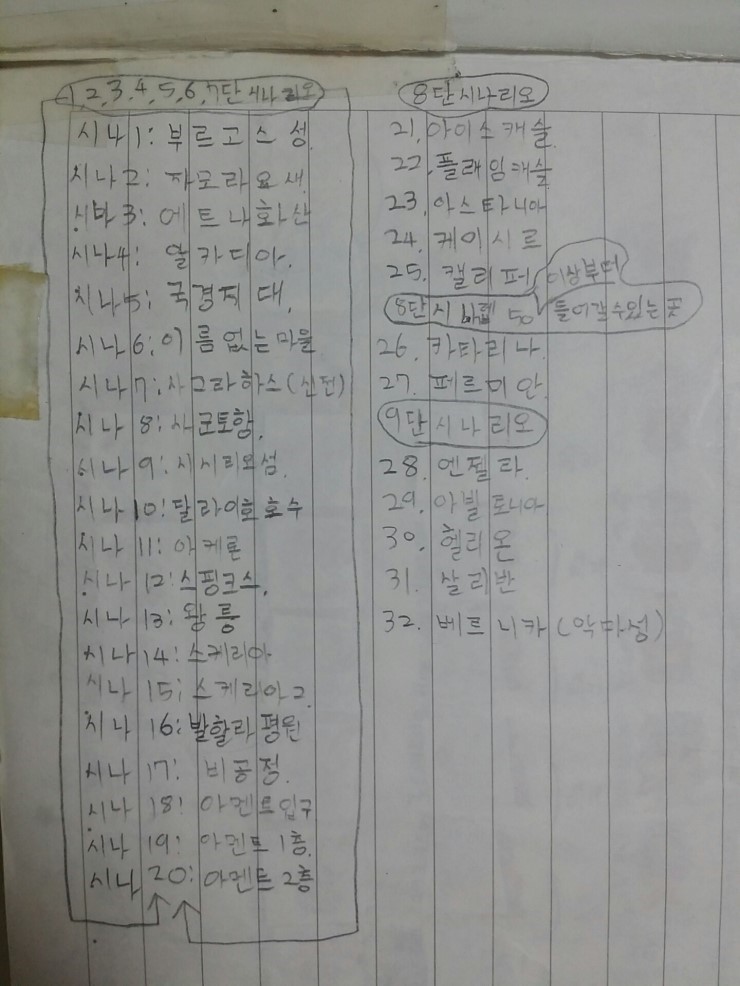 1,2,3,4,5,6,7단 시나리오
시나 1: 부르고스 성.
시나 2: 자모라 요새.
시나 3: 에트나 화산
시나 4: 알카디아.
시나 5: 국경지대.
시나 6: 이름없는 마을
시나 7: 사그라하스 (신전)
시나 8: 사군토항.
시나 9: 시시리요섬.
시나 10: 탈라이호 호수
시나 11: 아케론
시나 12: 스핑크스.
시나 13: 왕릉
시나 14: 스케리아
시나 15: 스케리아 2.
시나 16: 발할라 평원
시나 17: 비공정.
시나 18: 아멘트 입구
시나 19: 아멘트 1층.
시나 20: 아멘트 2층
8단 시나리오
21. 아이스 캐슬.
22. 플래임 캐슬
23. 아스타니아
24. 케이시르
25. 캘리퍼
8단 시 렙 50 이상부터 들어갈수있는 곳
26. 카타리나.
27. 페르미안.
9단 시나리오
28. 엔필타.
29. 아빌토니아
30. 헬리온
31. 살리반
32. 베트니카 (악마성)